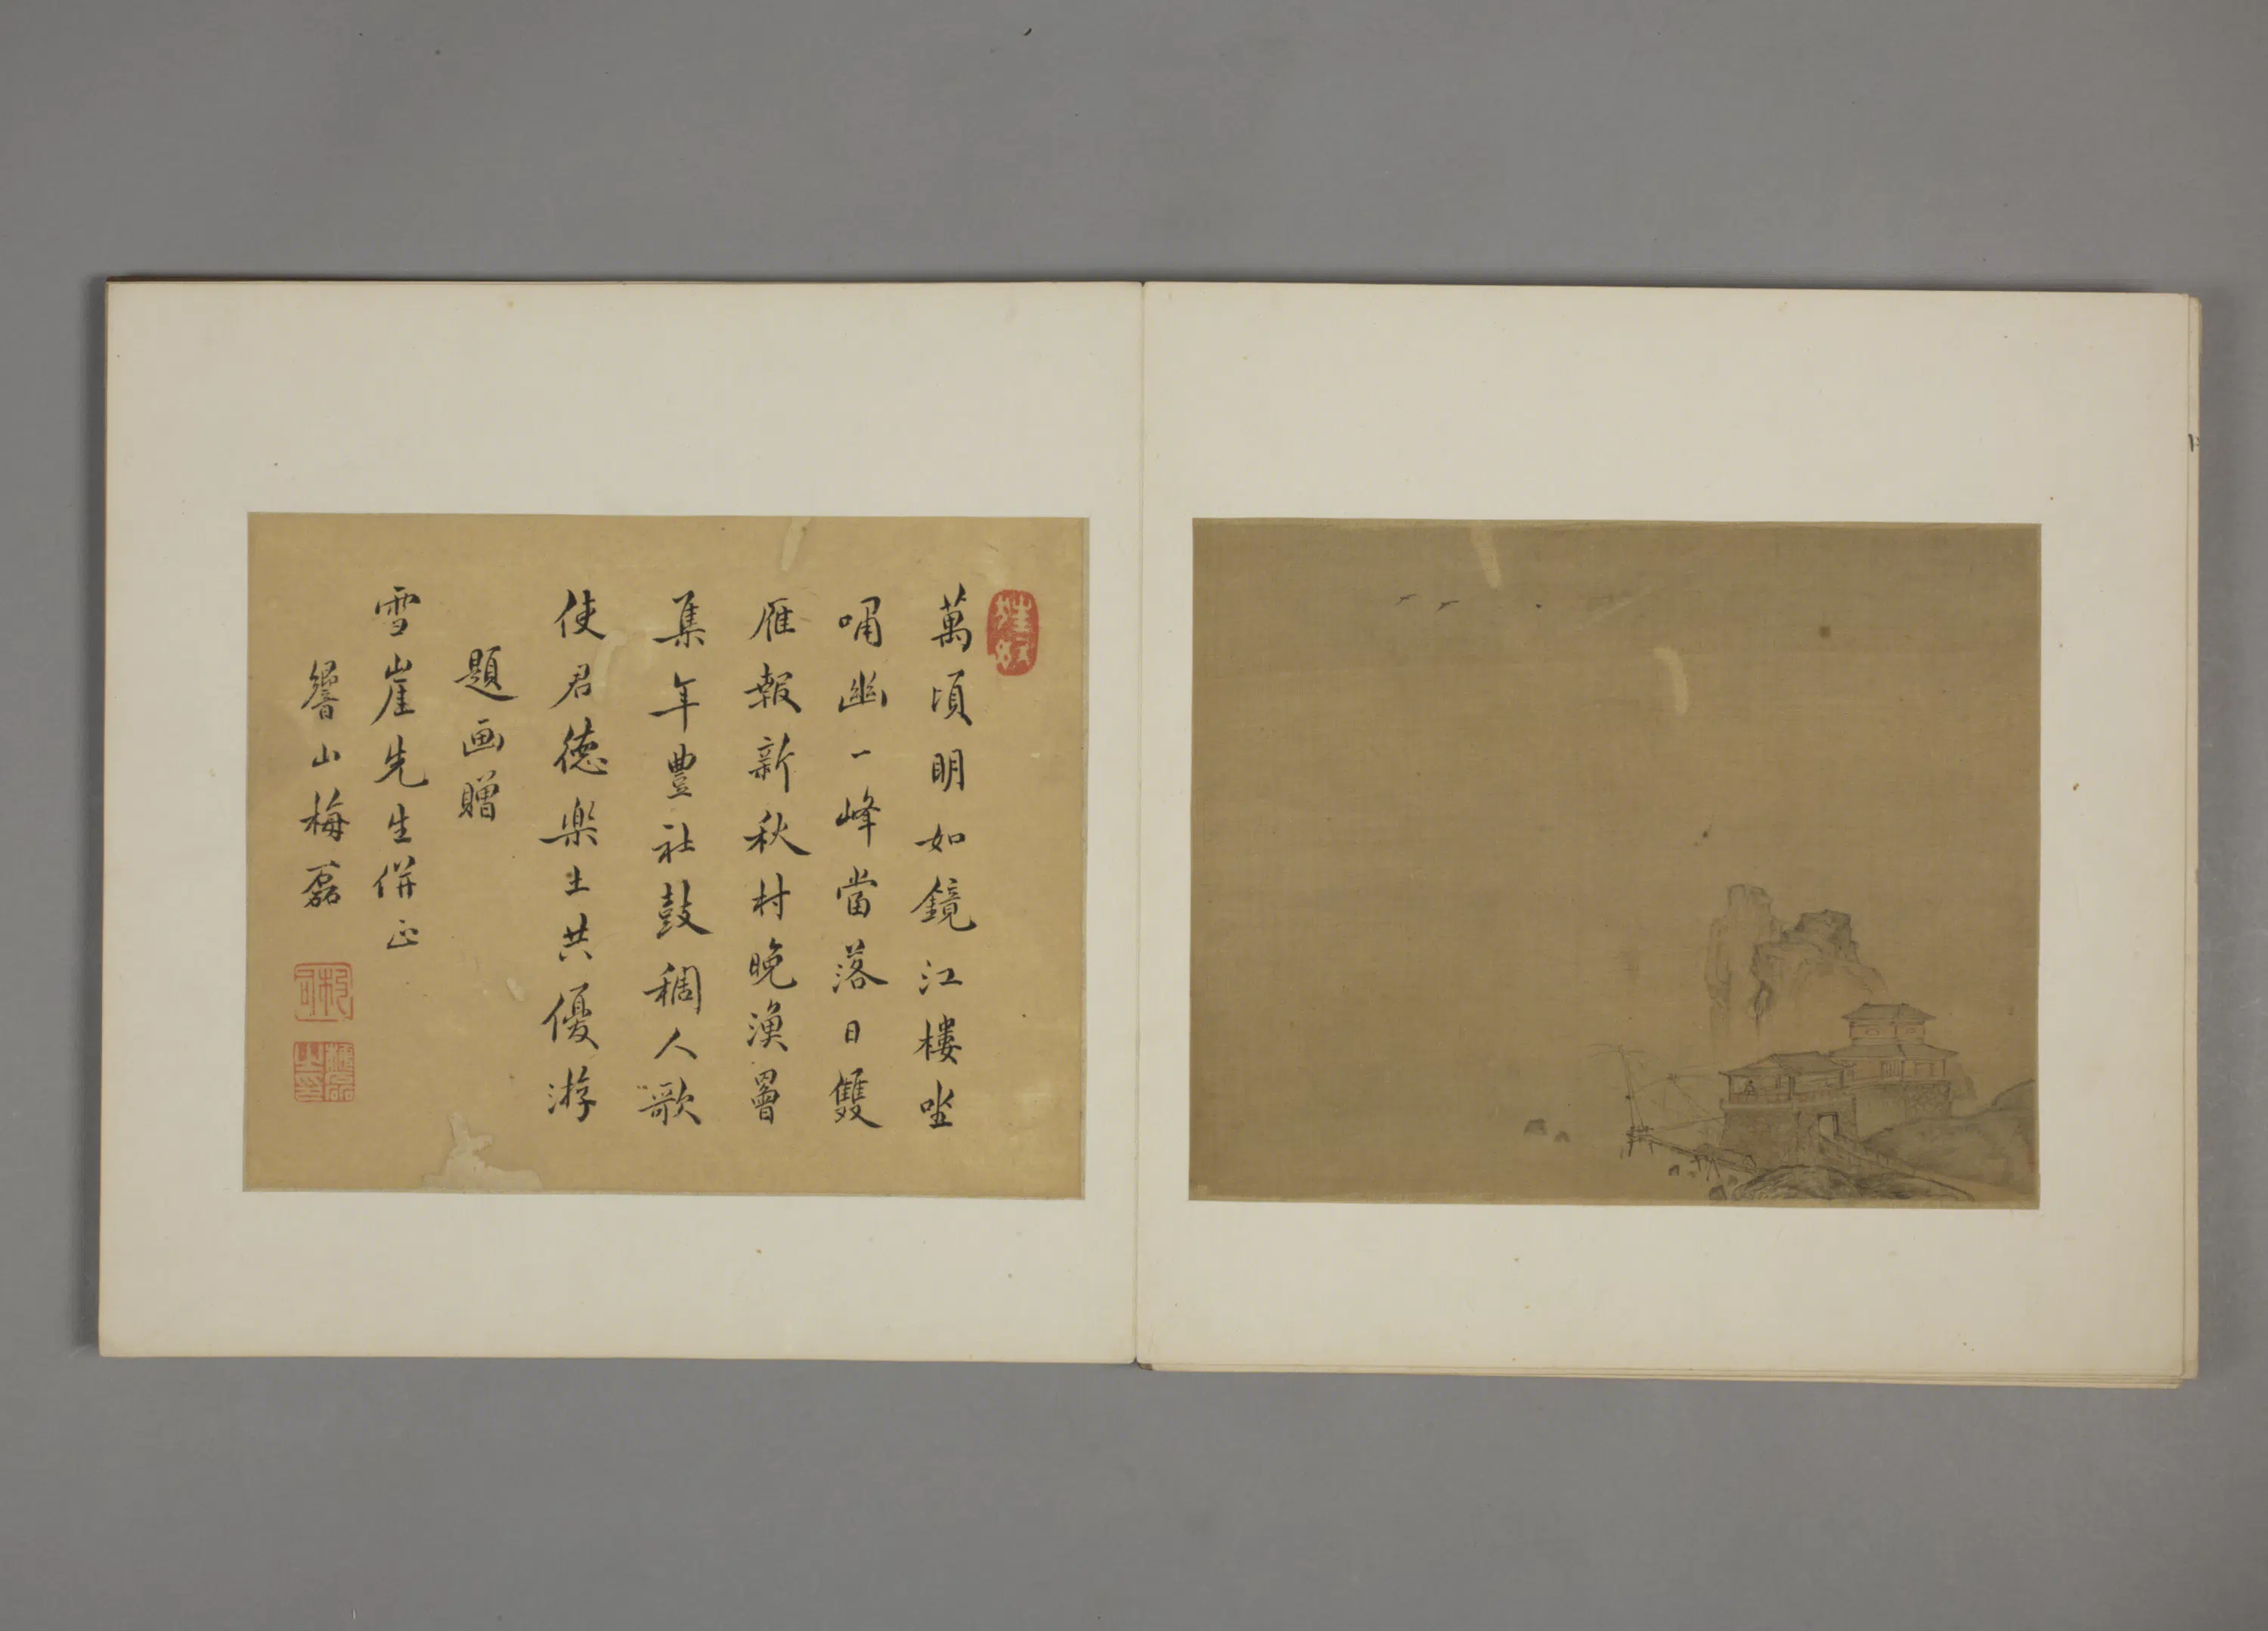 萬頃明如鏡江樓坐
嘯幽一峰當落日雙
雁報新秋村晚漁罾
集年豐社鼓稠人歌
使君德樂土共優游
題画贈
雪崖先生併正
響山梅磊